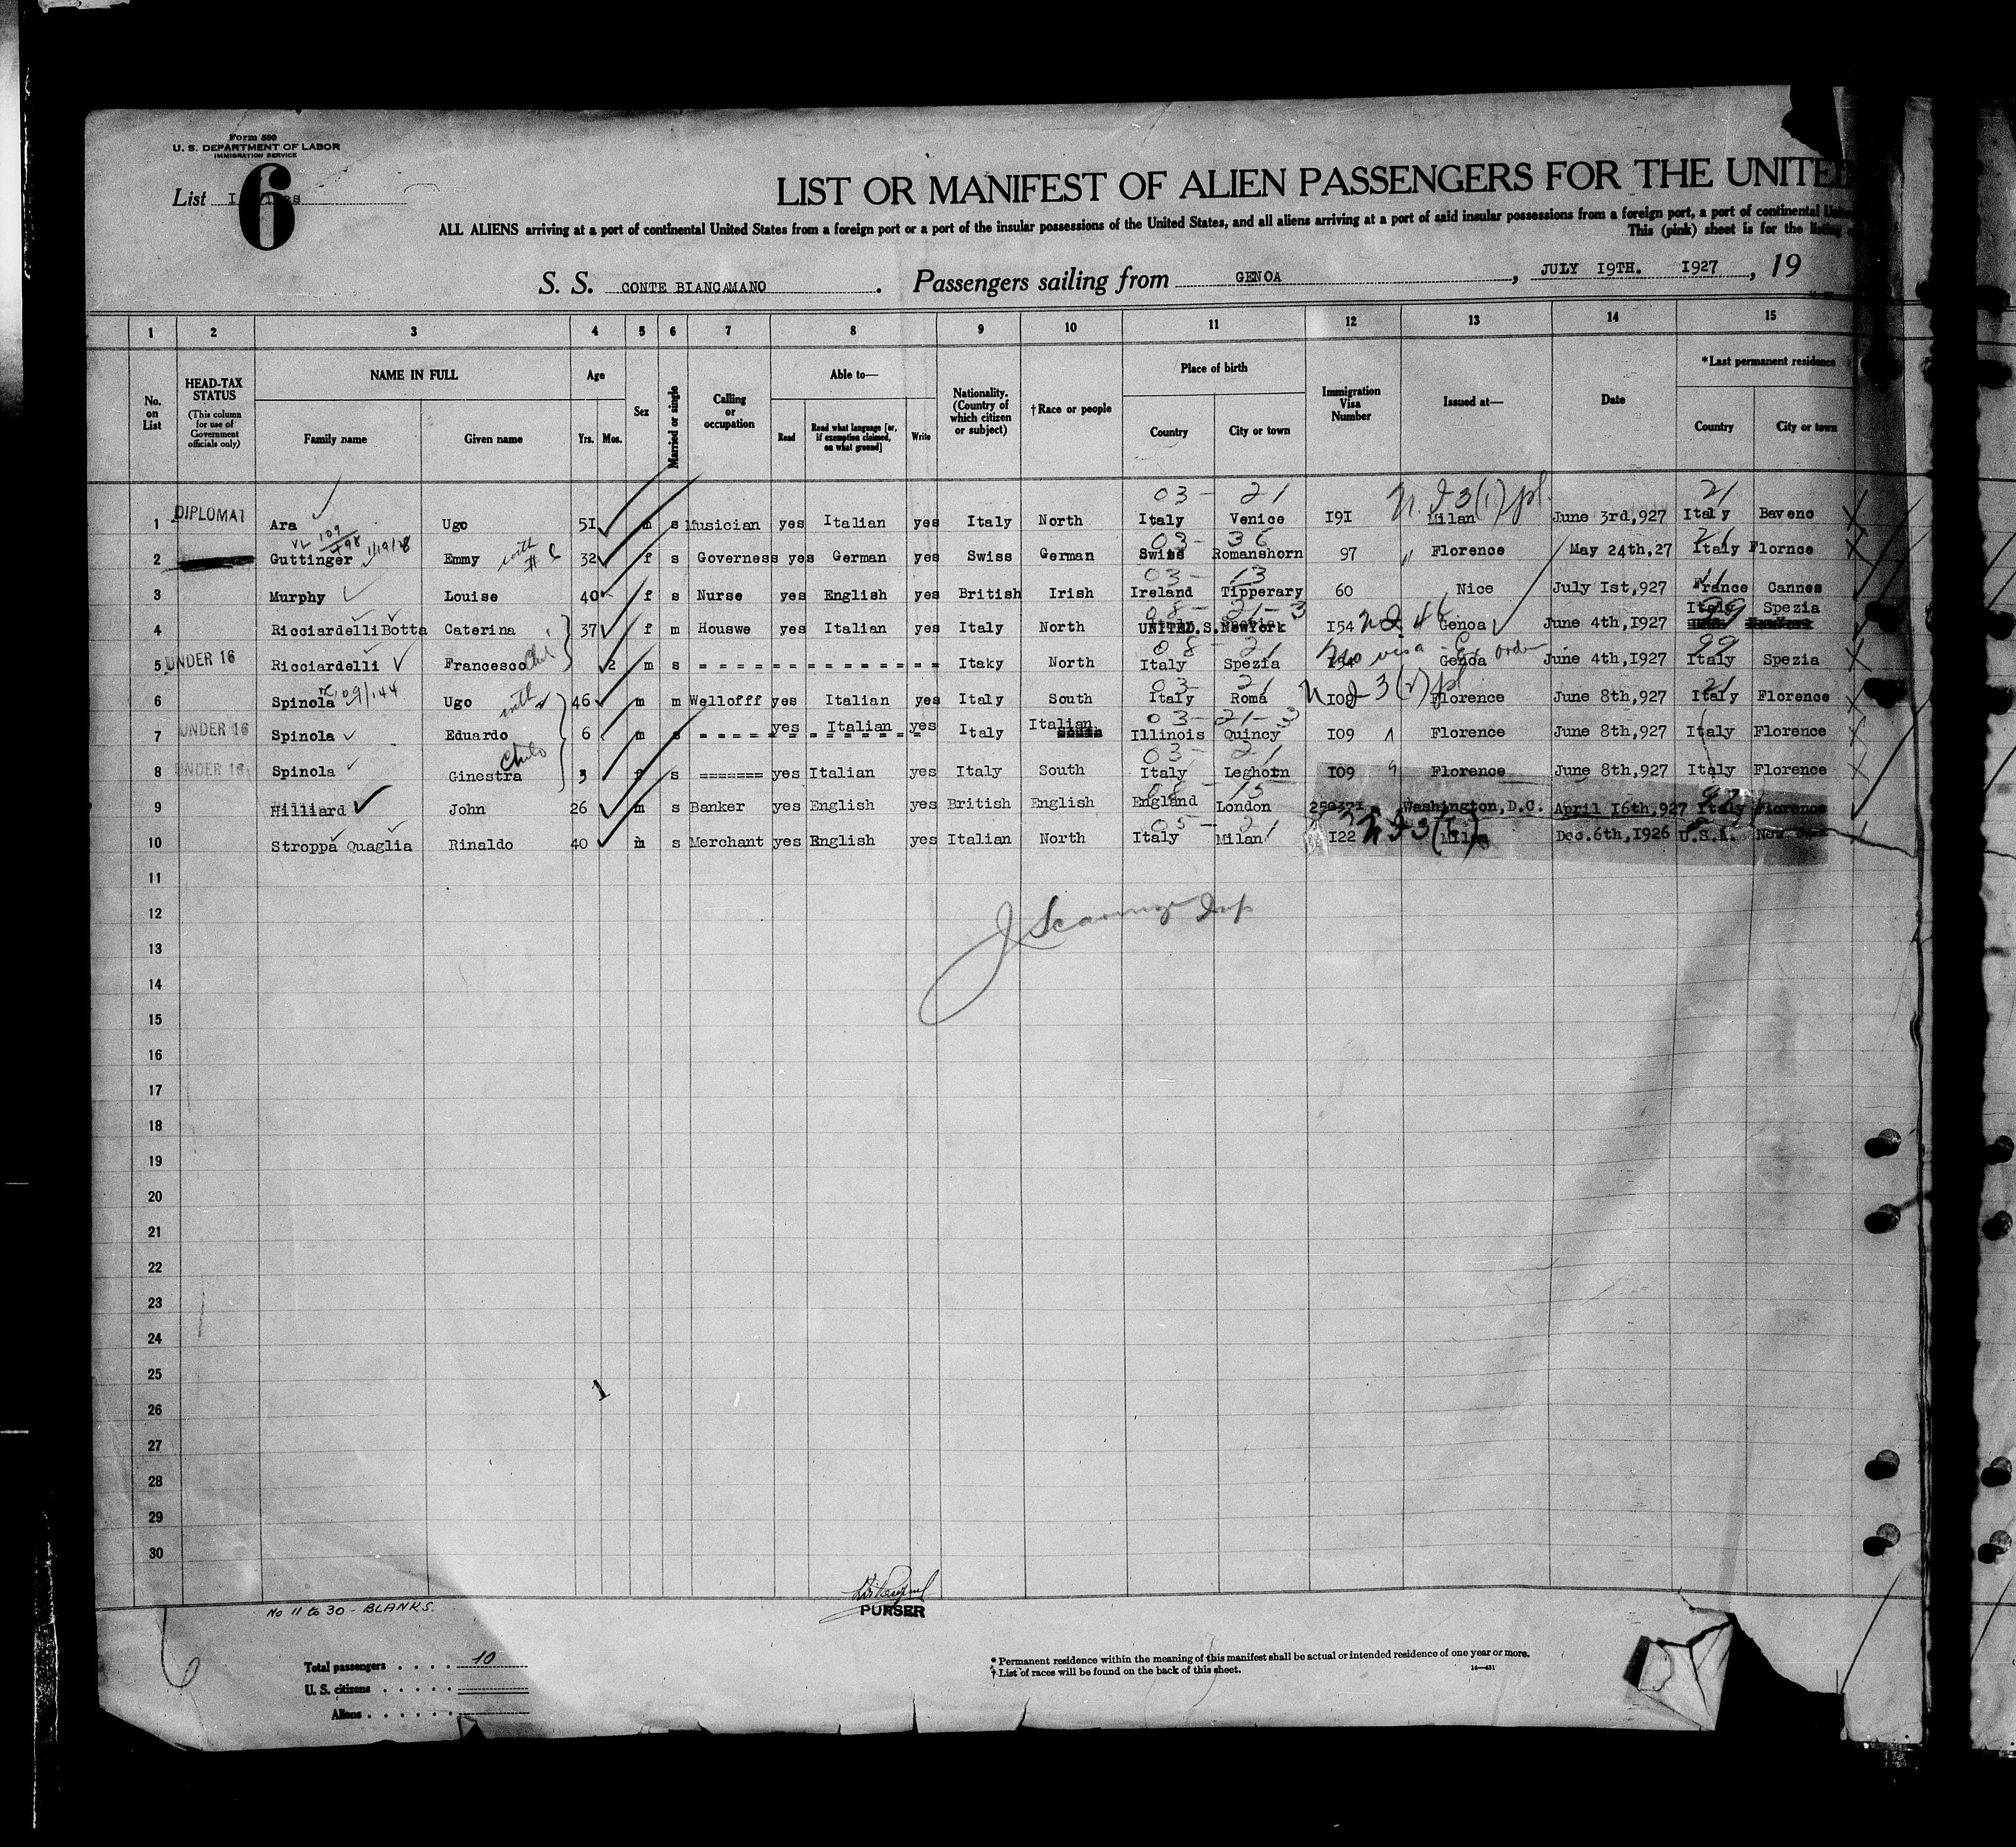 Form 500
U. S. DEPARTMENT OF LABOR
IMMIGRATION SERVICE
List
6
LIST OR MANIFEST OF ALIEN PASSENGERS FOR THE UNITED
ALL ALIENS arriving at a port of continental United States from a foreign port or a port of the insular possessions of the United States, and all aliens arriving at a port of said insular possessions from a foreign port, a port of continental
This (pink) sheet is for the listing
S. S. CONTE BIANCAMANO. Passengers sailing from GENOA, JULY 19TH. 1927, 19
1 2 3 4 5 6 7 8 9 10 11 12 13 14 15
No. on List
HEAD-TAX STATUS (This column for use of Government officials only)
NAME IN FULL
Family name Given name
Age
Yrs. Mos.
Sex
Married or single
Calling or occupation
Able to—
Read
Read what language [or, if exemption claimed, on what ground]
Write
Nationality. (Country of which citizen or subject)
†Race or people
Place of birth
Country City or town
Immigration Visa Number
Issued at—
Date
*Last permanent residence
Country City or town
03 - 21 21
1 DIPLOMAT Ara Ugo 51 m s Musician yes Italian yes Italy North Italy Venice 191 Milan June 3rd,927 Italy Baveno
03 - 36 21
2 Guttinger 1/19/28 Emmy with 32 f s Governess yes German yes Swiss German Swiss Romanshorn 97 Florence May 24th,27 Italy Flornce
03 - 13
3 Murphy Louise 40 f s Nurse yes English yes British Irish Ireland Tipperary 60 Nice July 1st,927 France Cannes
08 - 21 - 3 Italy Spezia
4 Ricciardelli Botta Caterina 37 f m Houswe yes Italian yes Italy North UNITED.S. NewYork 154 Genoa June 4th,1927
08 - 21 No visa - Ex order 99
5 UNDER 16 Ricciardelli Francesco 2 m s Itaky North Italy Spezia 154 Genoa June 4th,1927 Italy Spezia
03 - 21 21
6 Spinola 109/144 Ugo with 46 m m Wellofff yes Italian yes Italy South Italy Roma 108 Florence June 8th,927 Italy Florence
03 - 21 - 3
7 UNDER 16 Spinola Eduardo 6 m s yes Italian yes Italy Italian Illinois Quincy 109 Florence June 8th,927 Italy Florence
03 - 21
8 UNDER 16 Spinola Ginestra Child 3 f s ======= yes Italian yes Italy South Italy Leghorn 109 Florence June 8th,927 Italy Florence
08 - 15
9 Hilliard John 26 m s Banker yes English yes British English England London Washington,D.C. April 16th,927 Italy Florence
05 - 21
10 Stroppa Quaglia Rinaldo 40 m s Merchant yes English yes Italian North Italy Milan 122 Milan Dec.6th,1926 U.S.A. New York
11
12
13
14
15
16
17
18
19
20
21
22
23
24
25
26
27
28
29
30
No 11 to 30 - BLANKS.
PURSER
Total passengers . . . . 10
U. S. citizens . . . . .
Aliens . . . . . .
* Permanent residence within the meaning of this manifest shall be actual or intended residence of one year or more.
† List of races will be found on the back of this sheet.
14—431